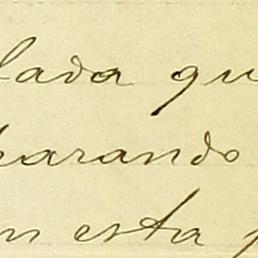 lada qu
parando
n esta p